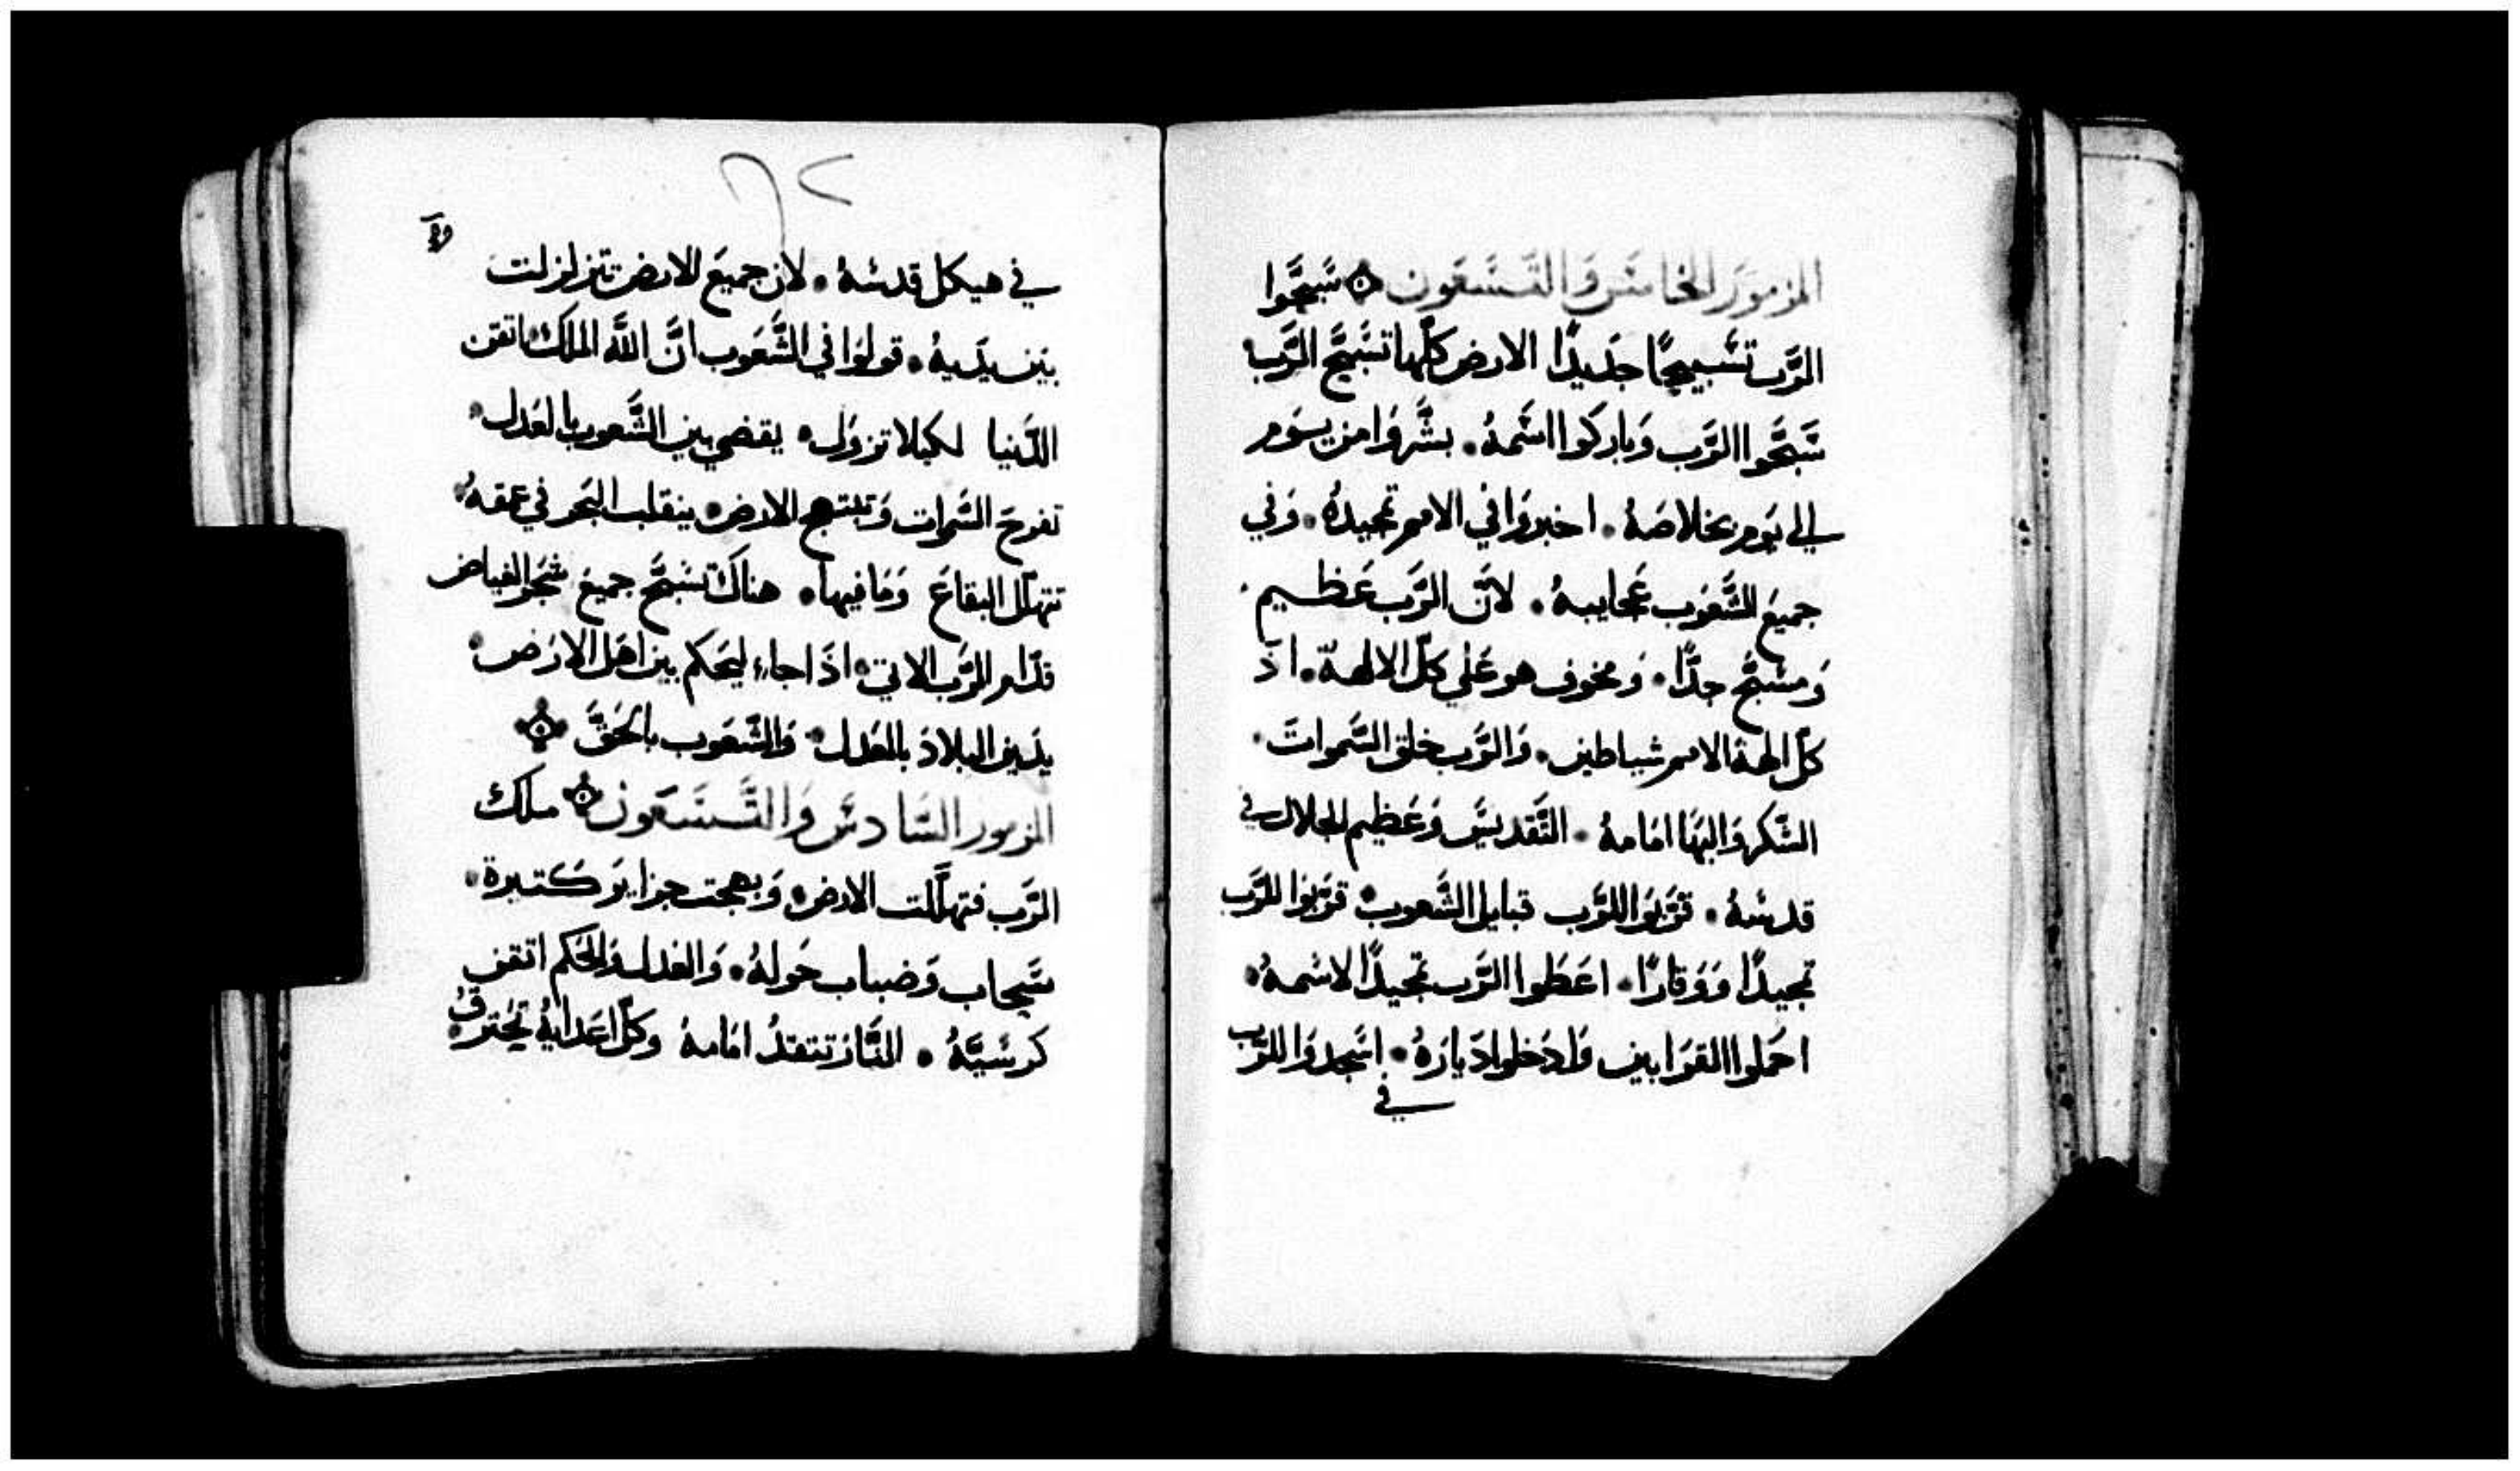 المزمور الخامس والتسعون سَبِّحُوا
الرَّب تسبيحًا جديدًا الارض كلّها تسَبِّح الرَّب
سَبِّحُوا الرَّب وَباركوا اسْمهُ. بشّروا من يوم
الى يوم بخلاصهُ. اخبروا في الامم تمجيدهُ. وَفي
جميع الشّعوب عَجايبهُ. لانّ الرَّب عَظيم.
وَمسَبَّح جدًّا. وَمخوف هو عَلي كلّ الالهة. اذ
كلّ الهة الامم شياطين. وَالرَّب خلق السَّموات.
الشّكر وَالبهَا امَامهُ. التَّقديس وَعَظيم الجلال في
قدسهُ. قرّبوا للرَّب قبايل الشَّعوب. قرّبوا للرَّب
تمجيدًا وَوَقارًا. اعَطوا الرَّب تمجيدًا لاسْمهُ.
احملوا القرَابين وَادخلوا ديَارهُ. اسْجدوا للرَّب
في
٩٢
في هيكل قدسهُ. لان جميعَ الارض تزلزلت
بين يدَيهُ. قولوا في الشَّعَوب انَّ اللَّه الملك اتقن
الدَّنيا لكيلا تزول. يقضي بين الشَّعوب بالعَدل.
تفرحَ السَّموات وَتبتهج الارض. ينقلب البَحر في عمقهُ.
تتهلّل البقاعَ وَمَا فيها. هناك تسَبِّح جميع شجَر الغياض
قدّام الرَّب الاتي. اذَا جاء ليَحكم بين اهَل الارَض.
يدَين البلادَ بالعَدل. وَالشّعَوب بالحَقَّ
المزمور السَّادسَ وَالتَّسَعَون ملك
الرَّب فتهلّلت الارض. وَبهجت جزاير كَثيرة.
سَحاب وَضباب حَولهُ. وَالعَدل وَالحَكم اتقن
كرسْيّهُ. النَّار تتقدُ امَامهُ وكلّ اعَدايهُ تَحترقُ.